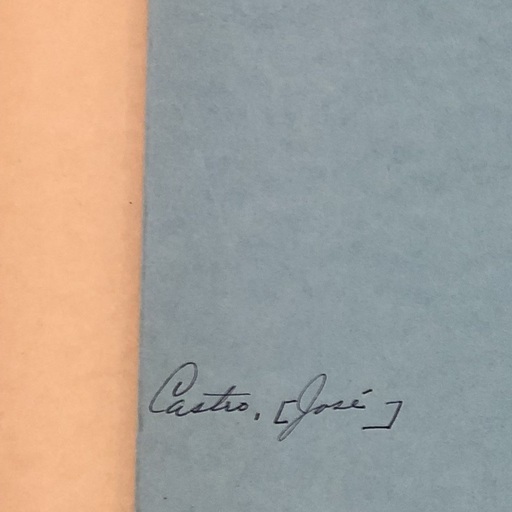 Castro, [José]